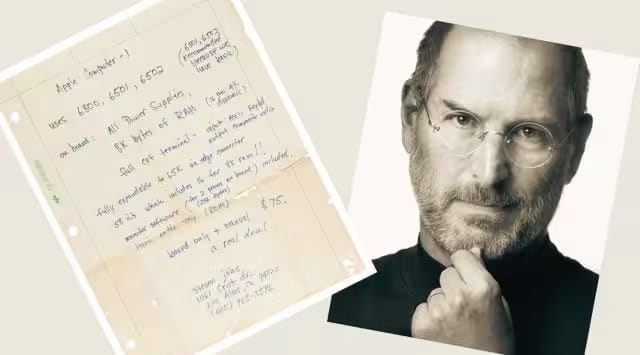 Apple Computer-1
uses 6800, 6501, 6502
(6501, 6502
recommended
because we
have basic)
on board: All Power Supplies,
8K bytes of RAM (16 pin 4K
dynamic)
full crt terminal - input: ASCII keybd
output: composite video
fully expandable to 65K via edge connector
58 IC's which includes 16 for 8K ram!!
monitor software (for 2 proms on board) included.
(256 bytes)
(ROM)
board only + manual $75.
a real deal
Steven Jobs
Los Altos, CA